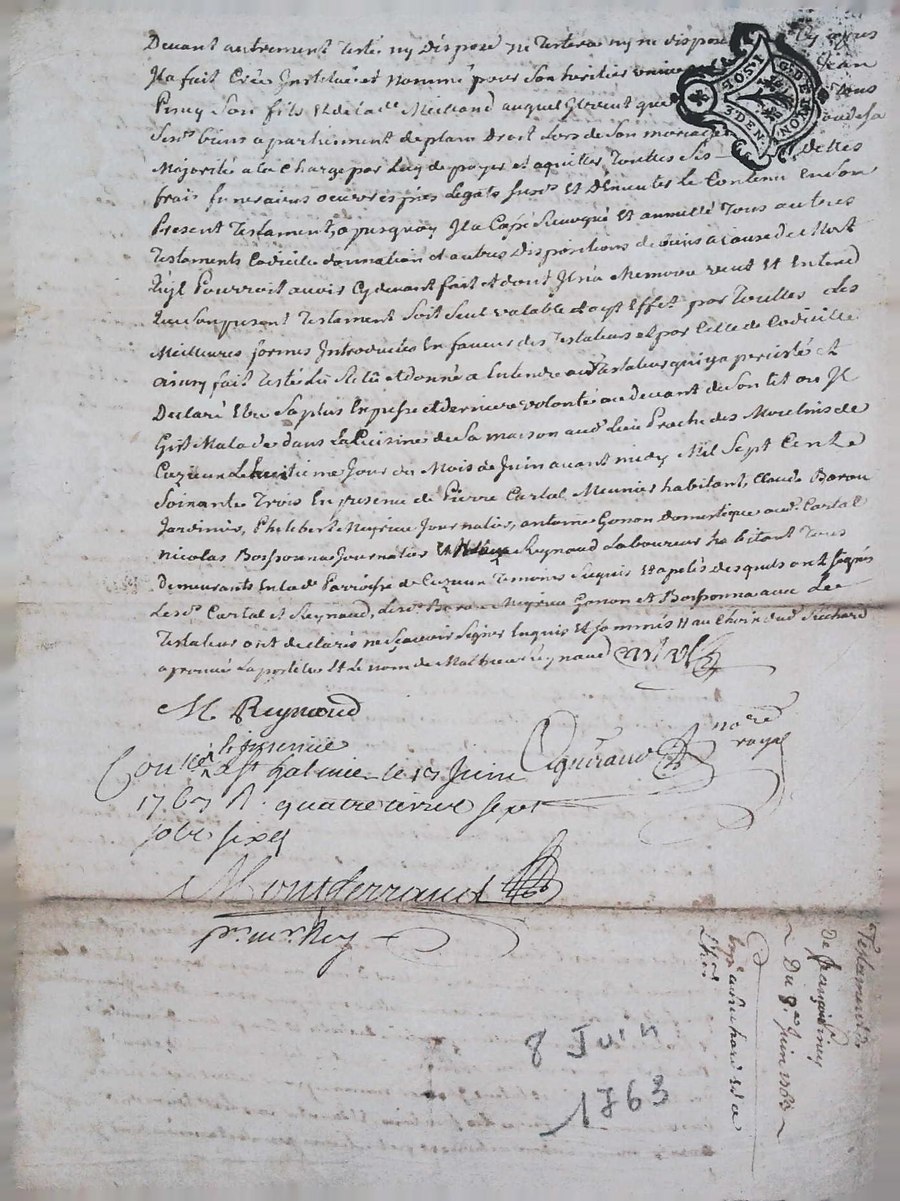 Devant autrement testé ny disposé ne testera ny ne dispose cy apres
Il a fait Créé Institué et nommé pour son heritier univer Jean
Piney son fils et de lad. Meiland auquel Il veut que tous
sesd. biens apartiennent de plain Droit lors de son mariage ou de sa
Majorité a la Charge par luy de payer et aquitter Touttes ses dettes
frais funeraires oeuvres pies Legats susd. et D'éxecuter le Contenu en son
Present Testament, a jusquoy Il a Cassé Revoqué et annullé Tous autres
Testaments Codicile donnation et autres Dispositions de biens a cause de Mort
qu'Il Pourroit avoir Cy devant fait et dont Il n'a Memoire veut et Entend
que son present Testament soit seul valable et ayt Effet par Touttes des
Meilleures formes Introduites En faveur des Testateurs et par Celle de Codicille
ainsy fait Testé Lû Relû et donné a Entendre aud Testateur qui y a percisté et
Declaré Etre sa plus Expresse et derniere volonté au devant de son lit ou Il
Gist Malade dans La Cuisine de sa maison aud. Lieu Proche des Moulins de
Cuzieu Le huitieme Jour du Mois de Juin avant midy Mil Sept Cent
Soixante Trois En presence de Pierre Cartal Meunier habitant, Claude Barou
Jardinier, Philebert Mejrieu Journalier, antoine Gonon Domestique aud. Cartal
Nicolas Bossonna Journalier et Reynaud Laboureur habitant Tous
Demeurants En lad. Parroisse de Cuzieu Temoins Requis et apelés desquels ont signés
Lesd. Cartal et Reynaud, Lesd. Barou Mejrieu Gonon et Bossonna avec Led
Testateur ont declarés ne sçavoir signer Enquis et sommés au Richard
aprouvé La et Le nom de Mathieu Reynaud
M. Reynaud
la presence
Conllé a St Galmie le 13 Juin
Aguiraud no.re royal
1763 R. quatre livre sept
sols six d
Montferrand
pr. mr. Rey
Testament
De françois Piney
Du 8.e Juin 1763
8 Juin
1763